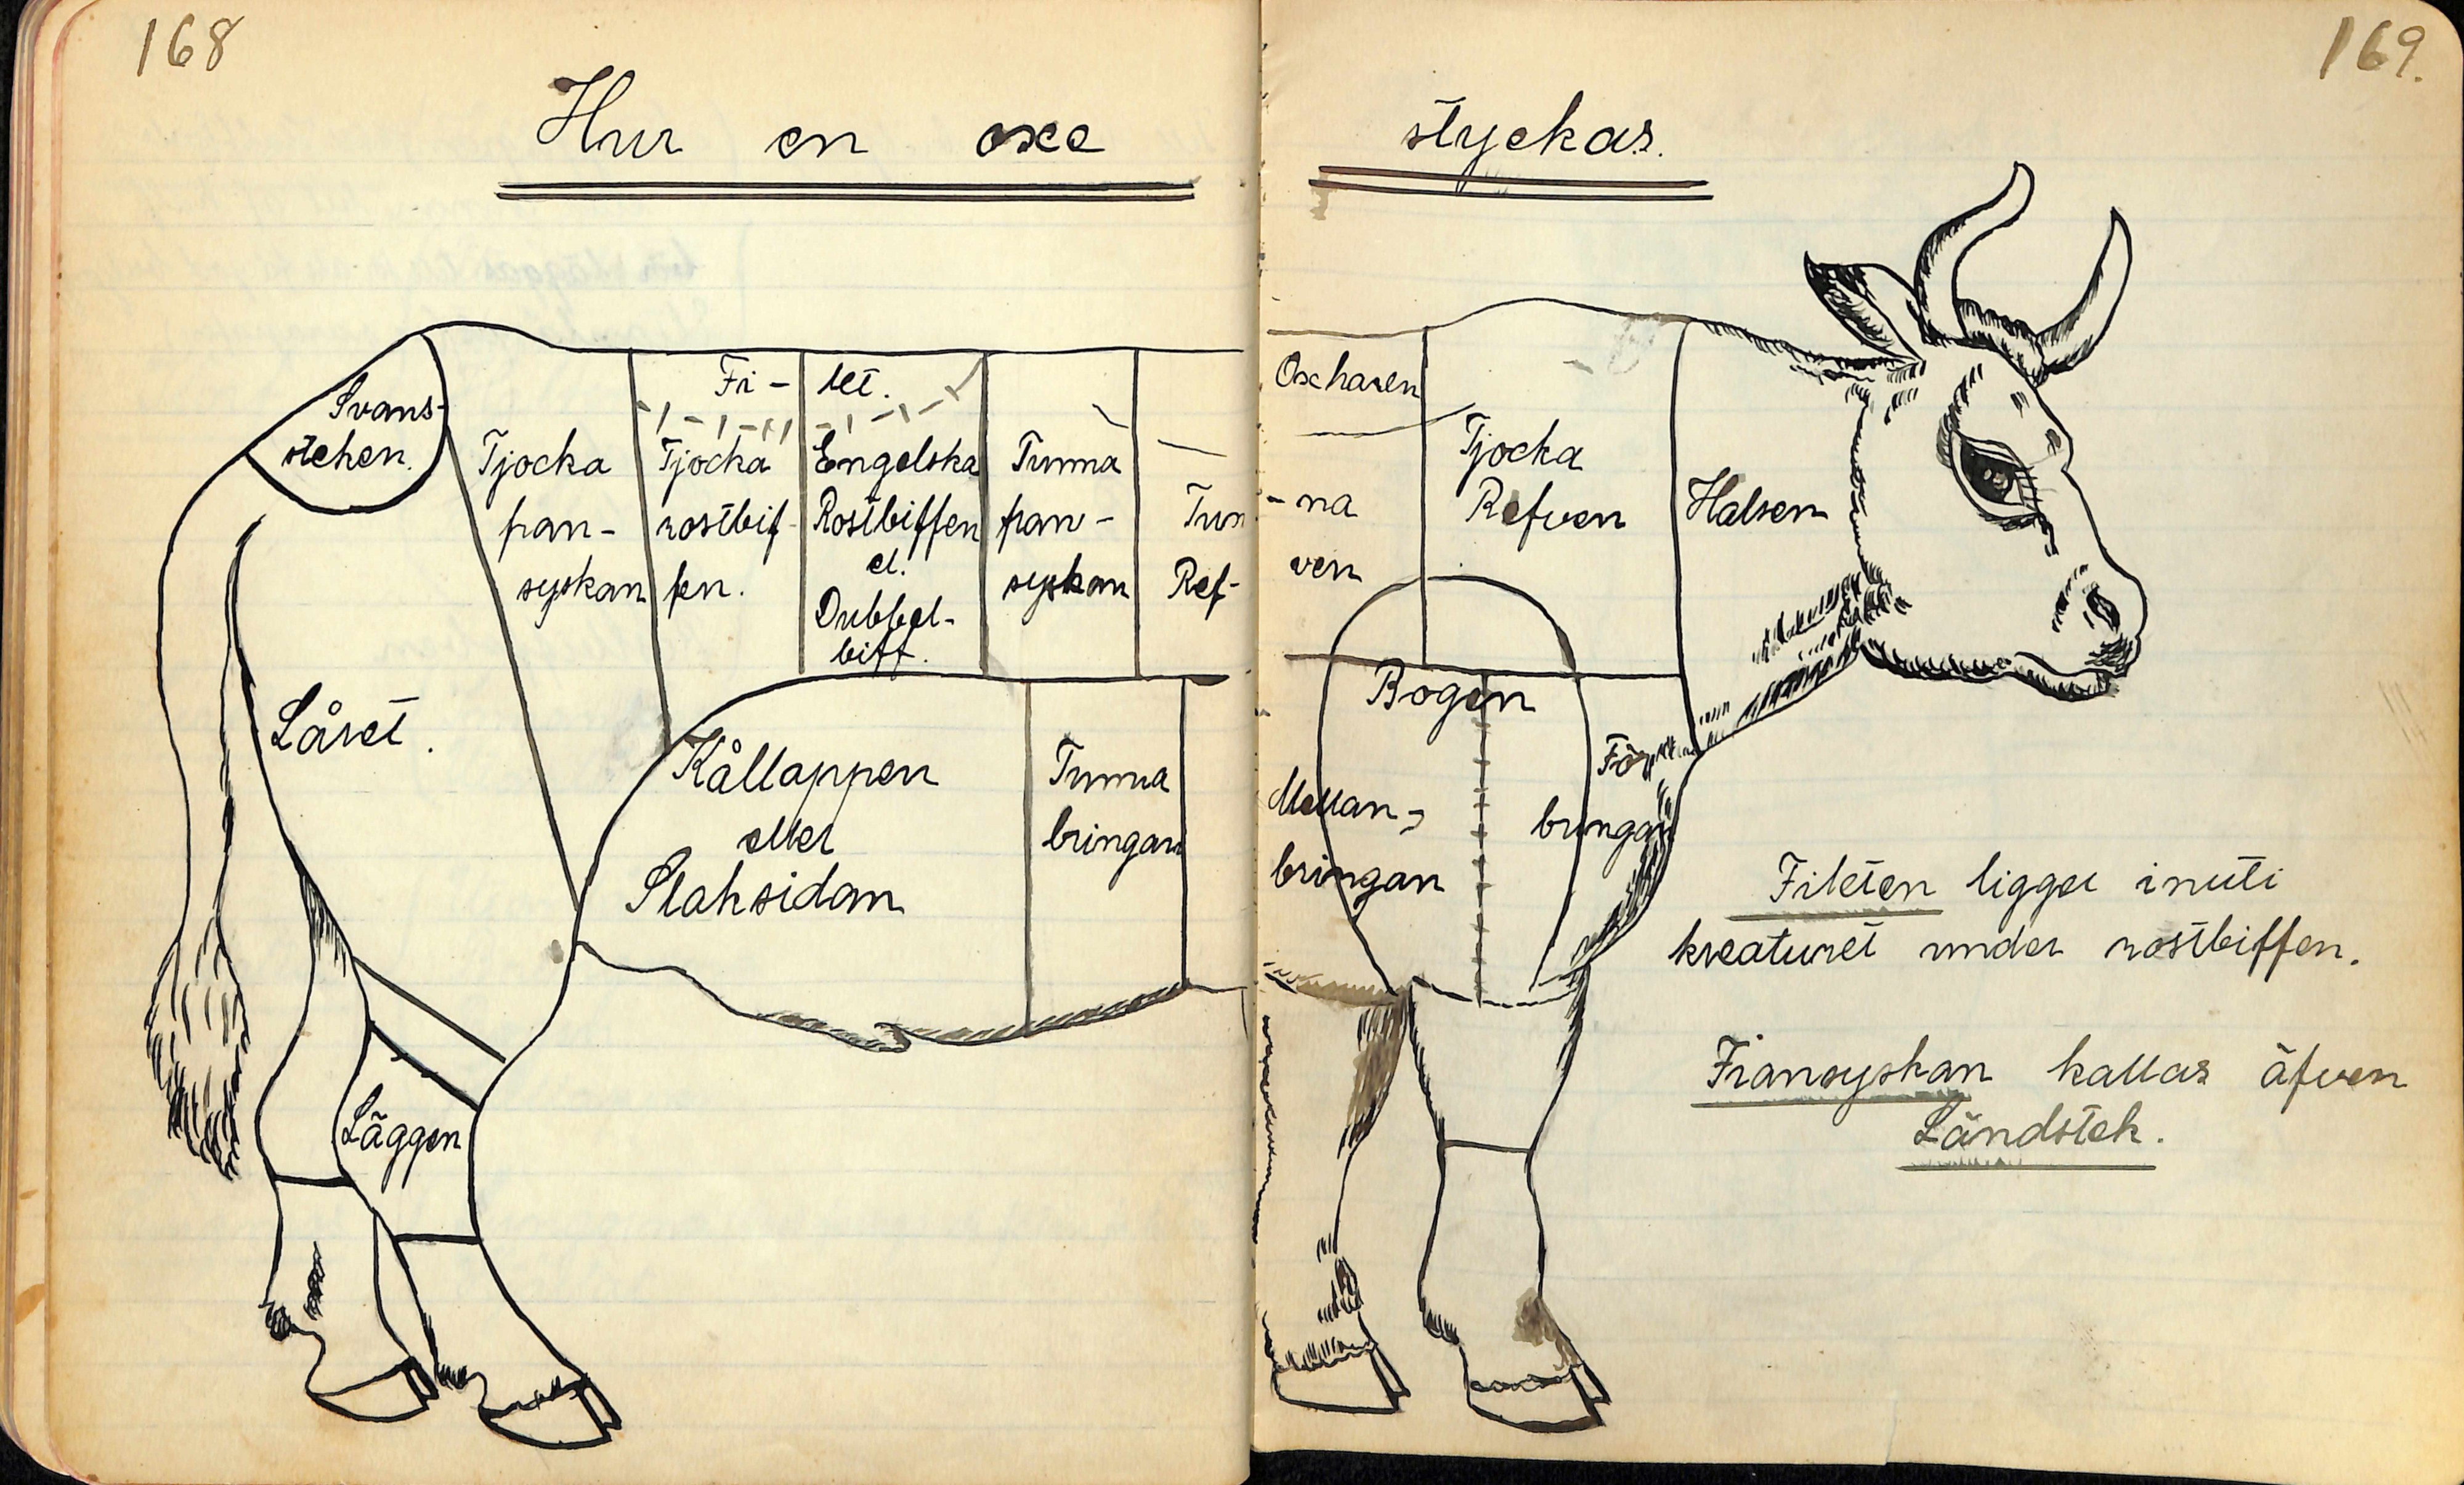 168
169.
Hur en oxe styckas.
Svans-
steken.
Tjocka
fran-
syskan
Fi- let.
Tjocka
rostbif-
fen.
Engelska
Rostbiffen
el.
Dubbel-
biff.
Tunna
fran-
syskan
Oxharen
Tun -na
Ref- ven
Tjocka
Refven
Halsen
Låret.
Kållappen
eller
Slaksidan
Tunna
bringan
Bogen
Mellan-
bringan
För
bringan
Läggen
Filéten ligger inuti
kreaturet under rostbiffen.
Fransyskan kallas äfven
Ländstek.